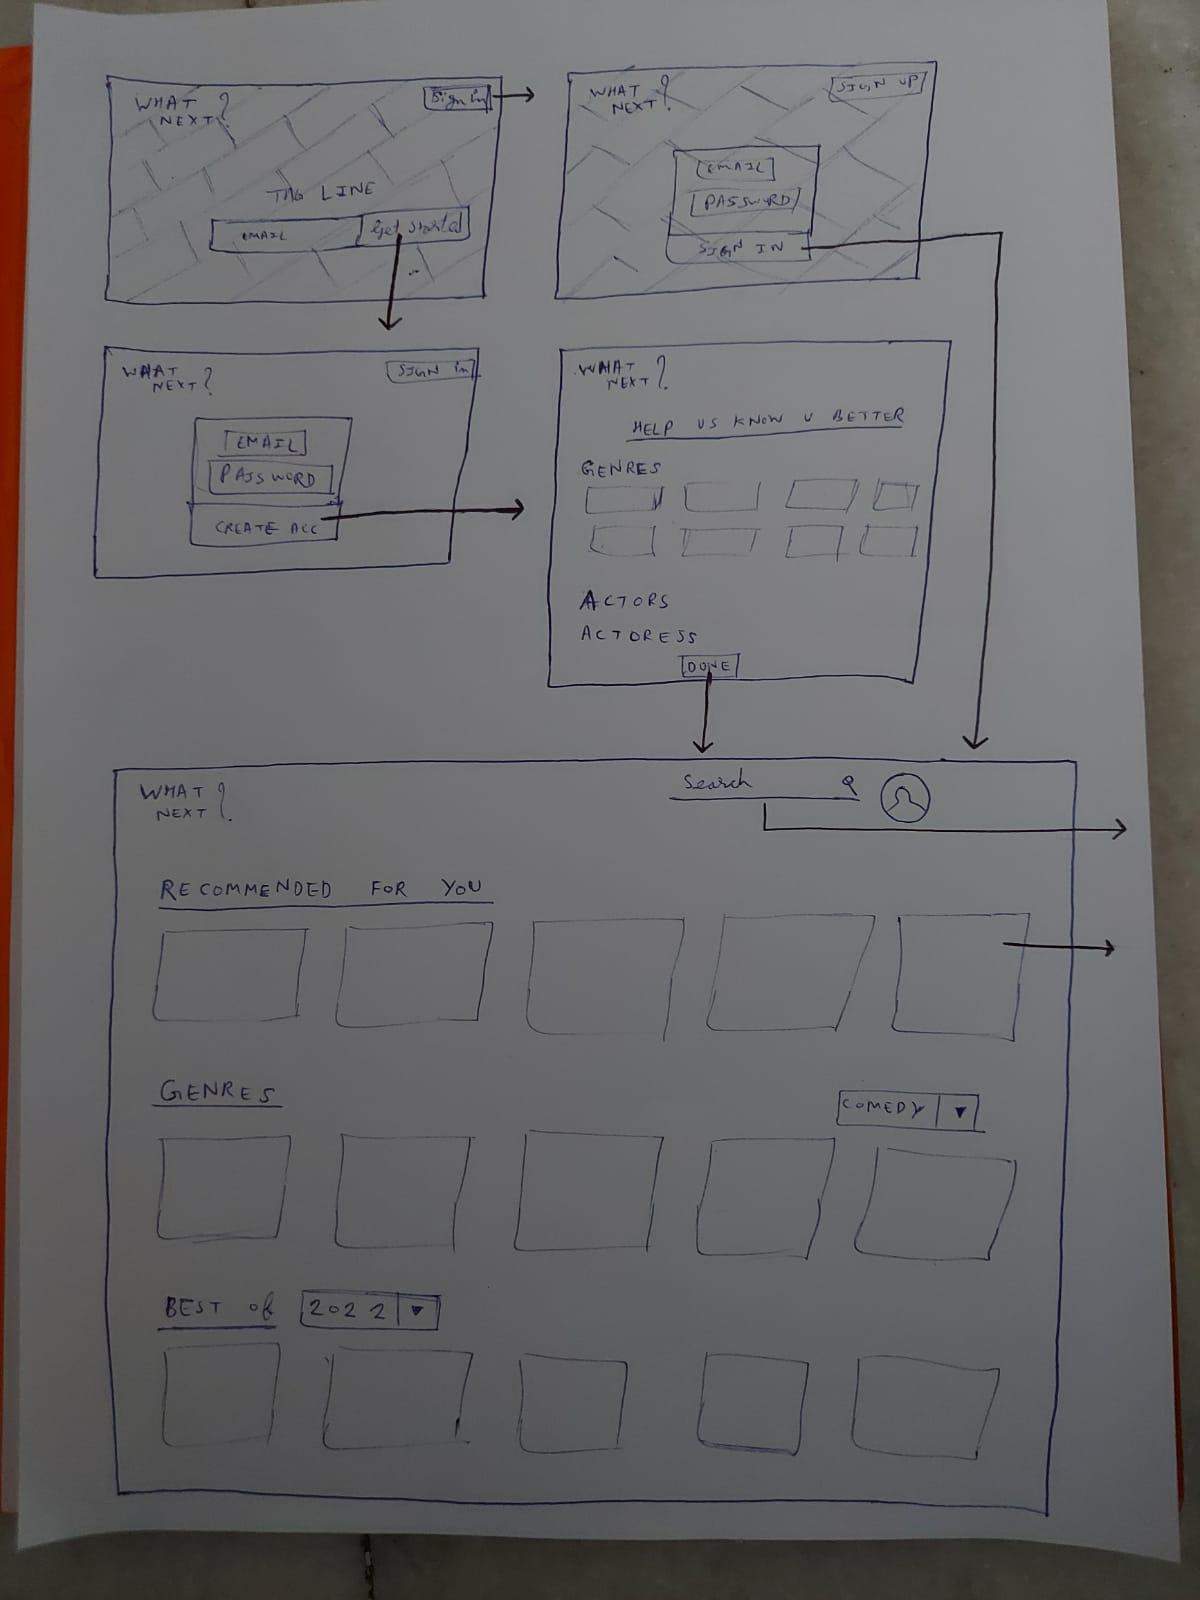 WHAT
NEXT?
Sign in
TAG LINE
EMAIL
Get Started
WHAT
NEXT?
SIGN UP
EMAIL
PASSWORD
SIGN IN
WHAT
NEXT?
SIGN in
EMAIL
PASSWORD
CREATE ACC
WHAT
NEXT?
HELP US KNOW U BETTER
GENRES
ACTORS
ACTORESS
DONE
WHAT
NEXT?
Search
RECOMMENDED FOR YOU
GENRES
COMEDY
BEST of 2022